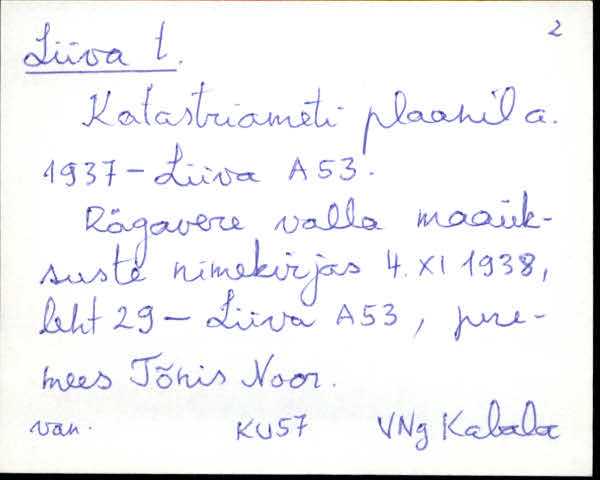 2
Liiva t.
Katastriameti plaanil a.
1937 - Liiva A53.
Rägavere valla maaük-
suste nimekirjas 4. XI 1938,
leht 29 - Liiva A53, pere-
mees Tõnis Noor.
van. KU57 VNg Kabala